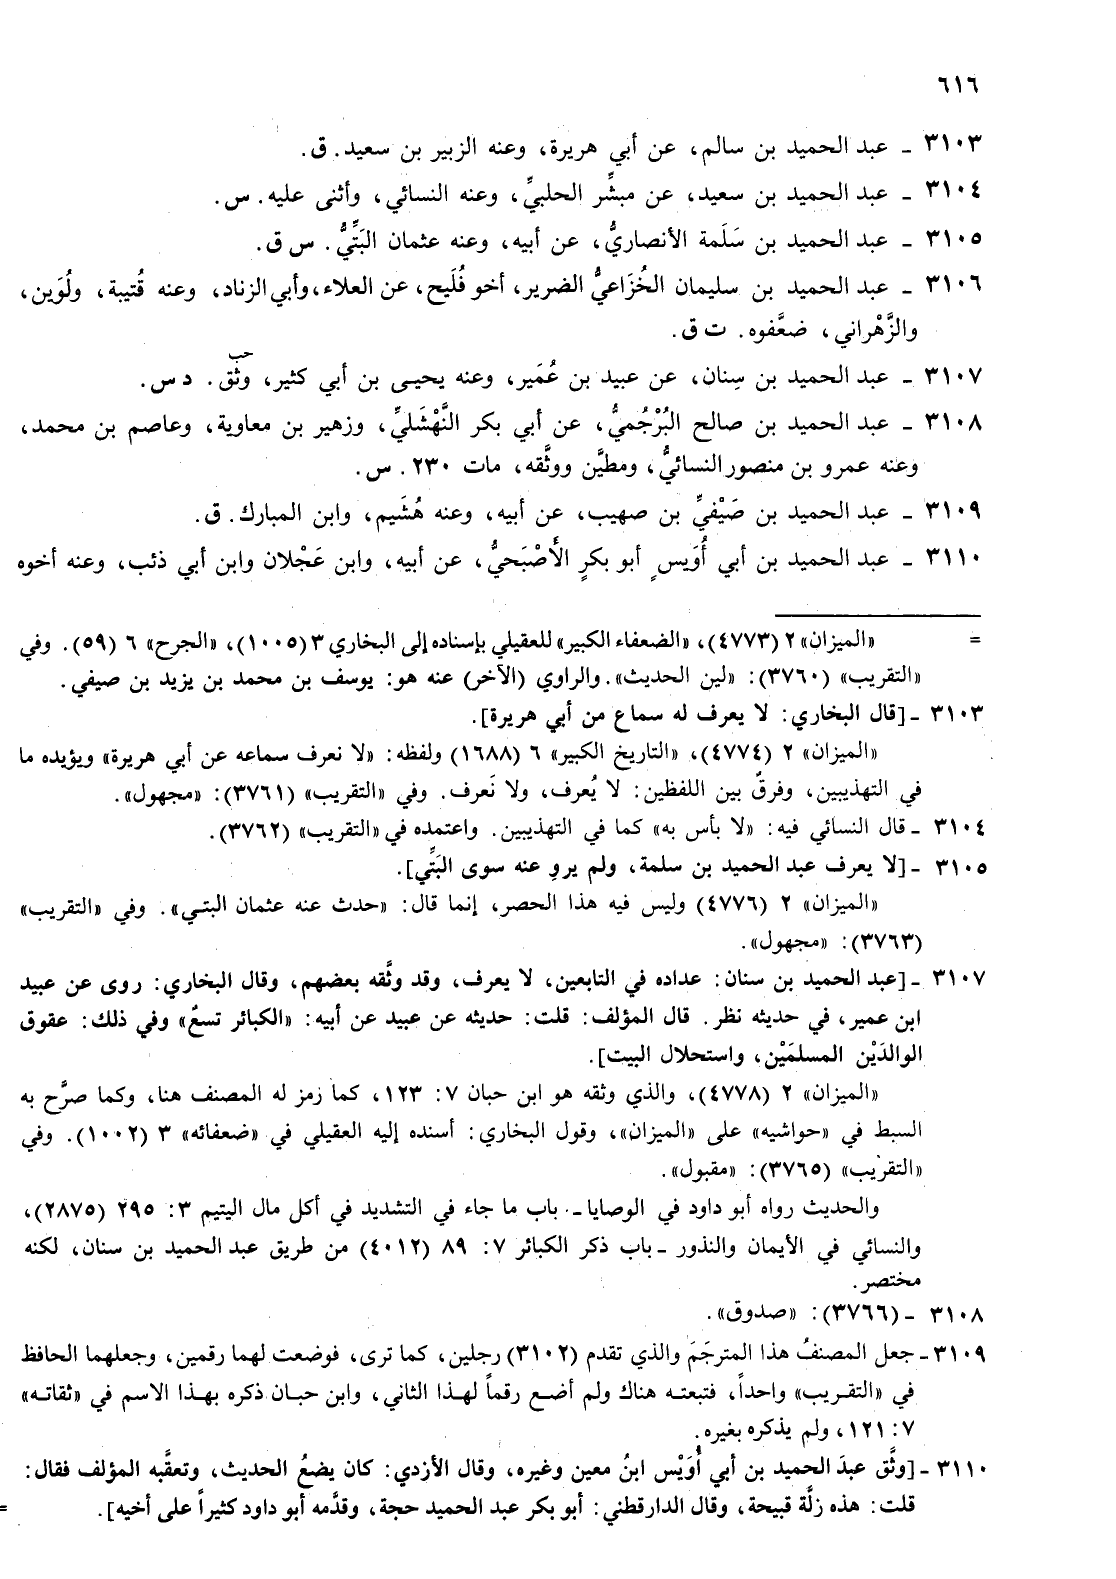 ٦١٦
٣١٠٣ ـ عبد الحميد بن سالم، عن أبي هريرة، وعنه الزبير بن سعيد. ق.
٣١٠٤ ـ عبد الحميد بن سعيد، عن مبشِّر الحلبيِّ، وعنه النسائي، وأثنى عليه. س.
٣١٠٥ ـ عبد الحميد بن سَلَمة الأنصاريُّ، عن أبيه، وعنه عثمان البَتِّيُّ. س ق.
٣١٠٦ ـ عبد الحميد بن سليمان الخُزَاعيُّ الضرير، أخو فُلَيح، عن العلاء، وأبي الزناد، وعنه قُتيبة، ولُوَين،
والزَّهْراني، ضعَّفوه. ت ق.
٣١٠٧ ـ عبد الحميد بن سِنان، عن عبيد بن عُمَير، وعنه يحيى بن أبي كثير، وثق. حب د س.
٣١٠٨ ـ عبد الحميد بن صالح البُرْجُميُّ، عن أبي بكر النَّهْشَليِّ، وزهير بن معاوية، وعاصم بن محمد،
وعنه عمرو بن منصور النسائيُّ، ومطيَّن ووثَّقه، مات ٢٣٠. س.
٣١٠٩ ـ عبد الحميد بن صَيْفيِّ بن صهيب، عن أبيه، وعنه هُشَيم، وابن المبارك. ق.
٣١١٠ ـ عبد الحميد بن أبي أُوَيسٍ أبو بكرٍ الأَصْبَحيُّ، عن أبيه، وابن عَجْلان وابن أبي ذئب، وعنه أخوه
= «الميزان» ٢ (٤٧٧٣)، «الضعفاء الكبير» للعقيلي بإسناده إلى البخاري ٣ (١٠٠٥)، «الجرح» ٦ (٥٩). وفي
«التقريب» (٣٧٦٠): «لين الحديث». والراوي (الآخر) عنه هو: يوسف بن محمد بن يزيد بن صيفي.
٣١٠٣ ـ [قال البخاري: لا يعرف له سماع من أبي هريرة].
«الميزان» ٢ (٤٧٧٤)، «التاريخ الكبير» ٦ (١٦٨٨) ولفظه: «لا نعرف سماعه عن أبي هريرة» ويؤيده ما
في التهذيبين، وفرقٌ بين اللفظين: لا يُعرف، ولا نَعرف. وفي «التقريب» (٣٧٦١): «مجهول».
٣١٠٤ ـ قال النسائي فيه: «لا بأس به» كما في التهذيبين. واعتمده في «التقريب» (٣٧٦٢).
٣١٠٥ ـ [لا يعرف عبد الحميد بن سلمة، ولم يروِ عنه سوى البَتِّي].
«الميزان» ٢ (٤٧٧٦) وليس فيه هذا الحصر، إنما قال: «حدث عنه عثمان البتي». وفي «التقريب»
(٣٧٦٣): «مجهول».
٣١٠٧ ـ [عبد الحميد بن سنان: عداده في التابعين، لا يعرف، وقد وثَّقه بعضهم، وقال البخاري: روى عن عبيد
ابن عمير، في حديثه نظر. قال المؤلف: قلت: حديثه عن عبيد عن أبيه: «الكبائر تسعٌ» وفي ذلك: عقوق
الوالدَيْن المسلمَيْن، واستحلال البيت].
«الميزان» ٢ (٤٧٧٨)، والذي وثقه هو ابن حبان ٧: ١٢٣، كما رمز له المصنف هنا، وكما صرَّح به
السبط في «حواشيه» على «الميزان»، وقول البخاري: أسنده إليه العقيلي في «ضعفائه» ٣ (١٠٠٢). وفي
«التقريب» (٣٧٦٥): «مقبول».
والحديث رواه أبو داود في الوصايا ـ باب ما جاء في التشديد في أكل مال اليتيم ٣: ٢٩٥ (٢٨٧٥)،
والنسائي في الأيمان والنذور ـ باب ذكر الكبائر ٧: ٨٩ (٤٠١٢) من طريق عبد الحميد بن سنان، لكنه
مختصر.
٣١٠٨ ـ (٣٧٦٦): «صدوق».
٣١٠٩ ـ جعل المصنفُ هذا المترجَمَ والذي تقدم (٣١٠٢) رجلين، كما ترى، فوضعت لهما رقمين، وجعلهما الحافظ
في «التقريب» واحداً، فتبعته هناك ولم أضع رقماً لهذا الثاني، وابن حبان ذكره بهذا الاسم في «ثقاته»
٧: ١٢١، ولم يذكره بغيره.
٣١١٠ ـ [وثَّق عبدَ الحميد بن أبي أُوَيْس ابنُ معين وغيره، وقال الأزدي: كان يضعُ الحديث، وتعقَّبه المؤلف فقال:
قلت: هذه زلَّة قبيحة، وقال الدارقطني: أبو بكر عبد الحميد حجة، وقدَّمه أبو داود كثيراً على أخيه]. =